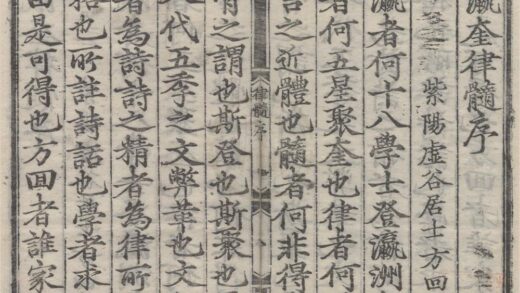 瀛奎律髓序
紫陽虛谷居士方回
瀛者何十八學士登瀛洲
者何五星聚奎也律者何
言之近體也髓者何非得
骨之謂也斯登也斯聚也
律髓序
代五季之文弊革也文
者為詩詩之精者為律所
格也所註詩話也學者求
由是可得也方回者誰家